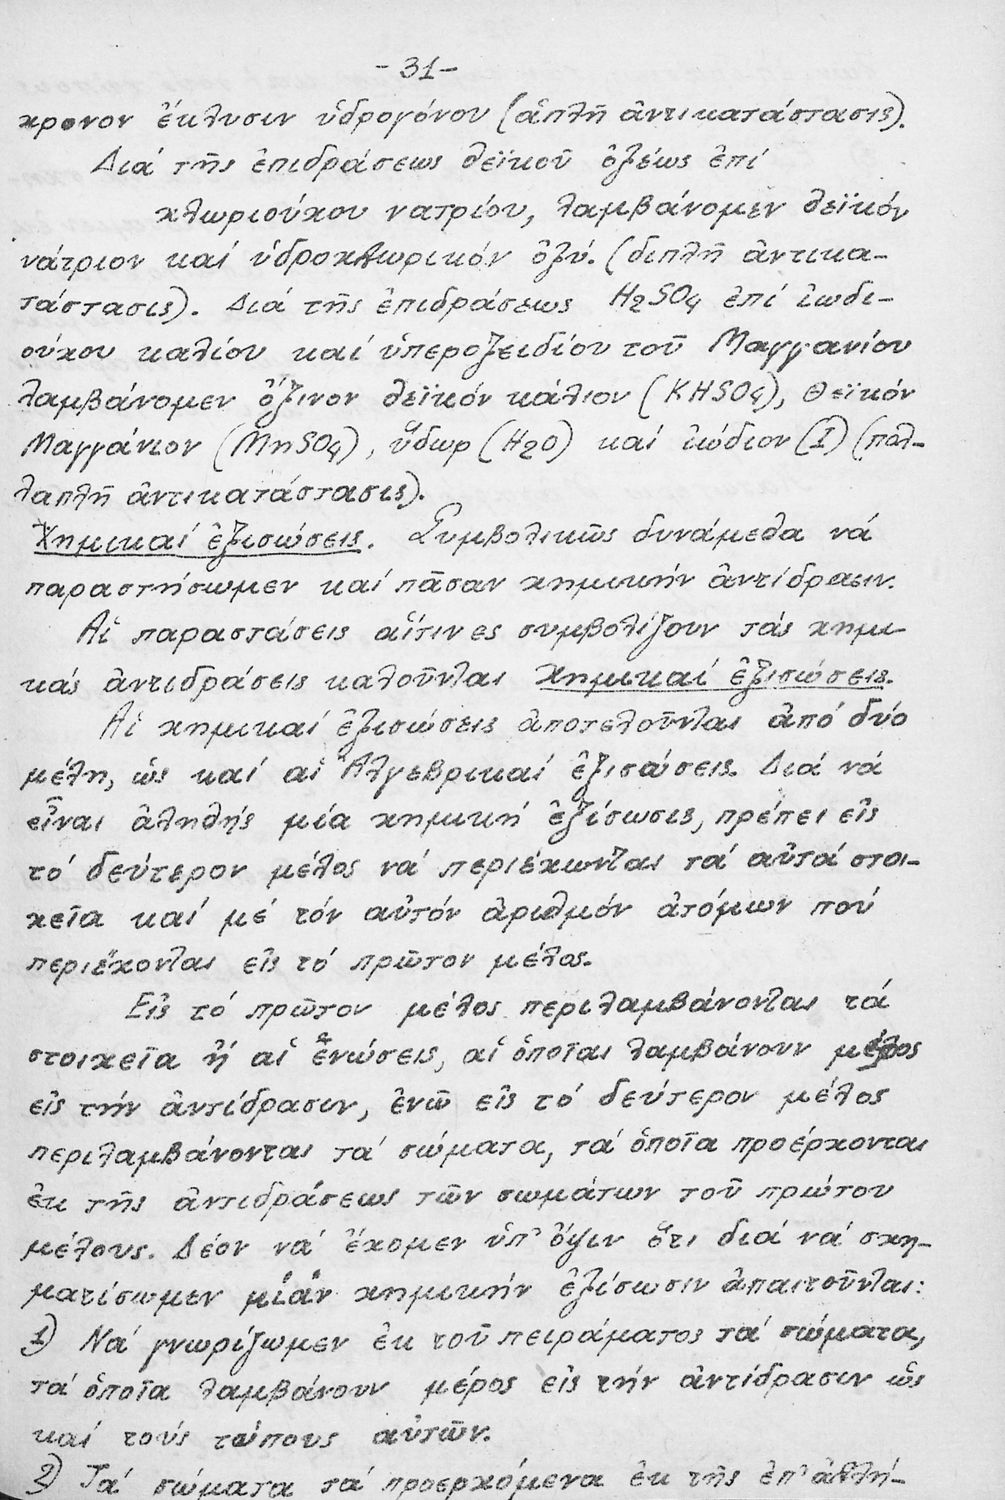 -31-
χρονον ἔκλυσιν ὑδρογόνου (ἁπλῆ ἀντικατάστασις).
Διά τῆς ἐπιδράσεως θεϊκοῦ ὀξέως ἐπί
χλωριούχου νατρίου, λαμβάνομεν θεϊκόν
νάτριον καί ὑδροχλωρικόν ὀξύ. (διπλῆ ἀντικα-
τάστασις). Διά τῆς ἐπιδράσεως H2SO4 ἐπί ἰωδι-
ούχου καλίου καί ὑπεροξειδίου τοῦ Μαγγανίου
λαμβάνομεν ὄξινον θεϊκόν κάλιον (KHSO4), Θεϊκόν
Μαγγάνιον (MnSO4), ὕδωρ (H2O) καί ἰώδιον (I) (πολ-
λαπλῆ ἀντικατάστασις).
Χημικαί ἐξισώσεις. Συμβολικῶς δυνάμεθα νά
παραστήσωμεν καί πᾶσαν χημικήν ἀντίδρασιν.
Αἱ παραστάσεις αἵτινες συμβολίζουν τάς χημι-
κάς ἀντιδράσεις καλοῦνται Χημικαί ἐξισώσεις.
Αἱ χημικαί ἐξισώσεις ἀποτελοῦνται ἀπό δύο
μέλη, ὡς καί αἱ Ἀλγεβρικαί ἐξισώσεις. Διά νά
εἶναι ἀληθής μία χημική ἐξίσωσις, πρέπει εἰς
τό δεύτερον μέλος νά περιέχωνται τά αὐτά στοι-
χεῖα καί μέ τόν αὐτόν ἀριθμόν ἀτόμων πού
περιέχονται εἰς τό πρῶτον μέλος.
Εἰς τό πρῶτον μέλος περιλαμβάνονται τά
στοιχεῖα ἤ αἱ ἑνώσεις, αἱ ὁποῖαι λαμβάνουν μέρος
εἰς τήν ἀντίδρασιν, ἐνῶ εἰς τό δεύτερον μέλος
περιλαμβάνονται τά σώματα, τά ὁποῖα προέρχονται
ἐκ τῆς ἀντιδράσεως τῶν σωμάτων τοῦ πρώτου
μέλους. Δέον νά ἔχομεν ὑπ' ὄψιν ὅτι διά νά σχη-
ματίσωμεν μίαν χημικήν ἐξίσωσιν ἀπαιτοῦνται:
1) Νά γνωρίζωμεν ἐκ τοῦ πειράματος τά σώματα,
τά ὁποῖα λαμβάνουν μέρος εἰς τήν ἀντίδρασιν ὡς
καί τούς τύπους αὐτῶν.
2) Τά σώματα τά προερχόμενα ἐκ τῆς ἐπ' ἀλλή-